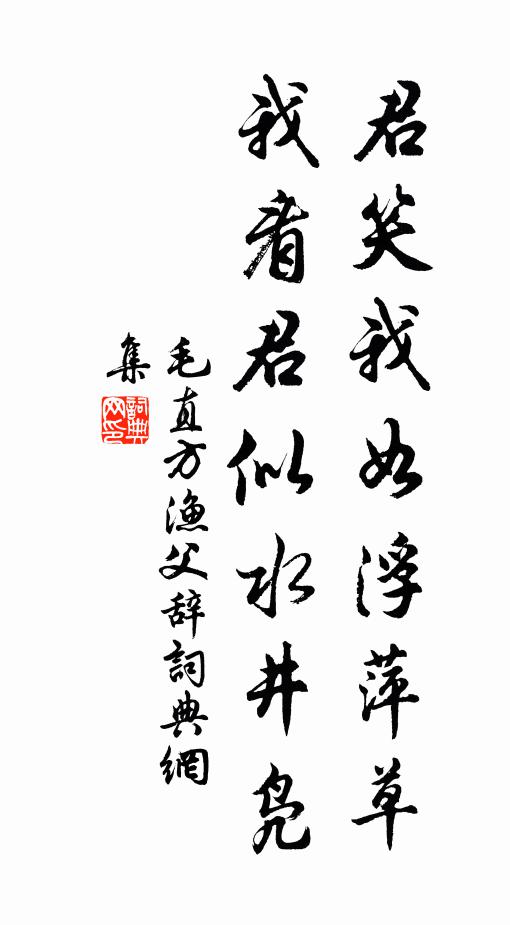 君笑我如浮萍草
我看君似水井凫
毛直方渔父辞詞典網
集
詞典网印